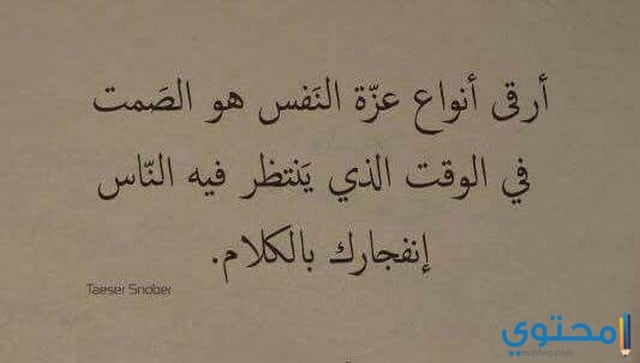 أرقى أنواع عزّة النَفس هو الصَمت
في الوقت الذي يَنتظر فيه النّاس
إنفجارك بالكلام.
Taeser Snober
محتوى
muhtwa.com